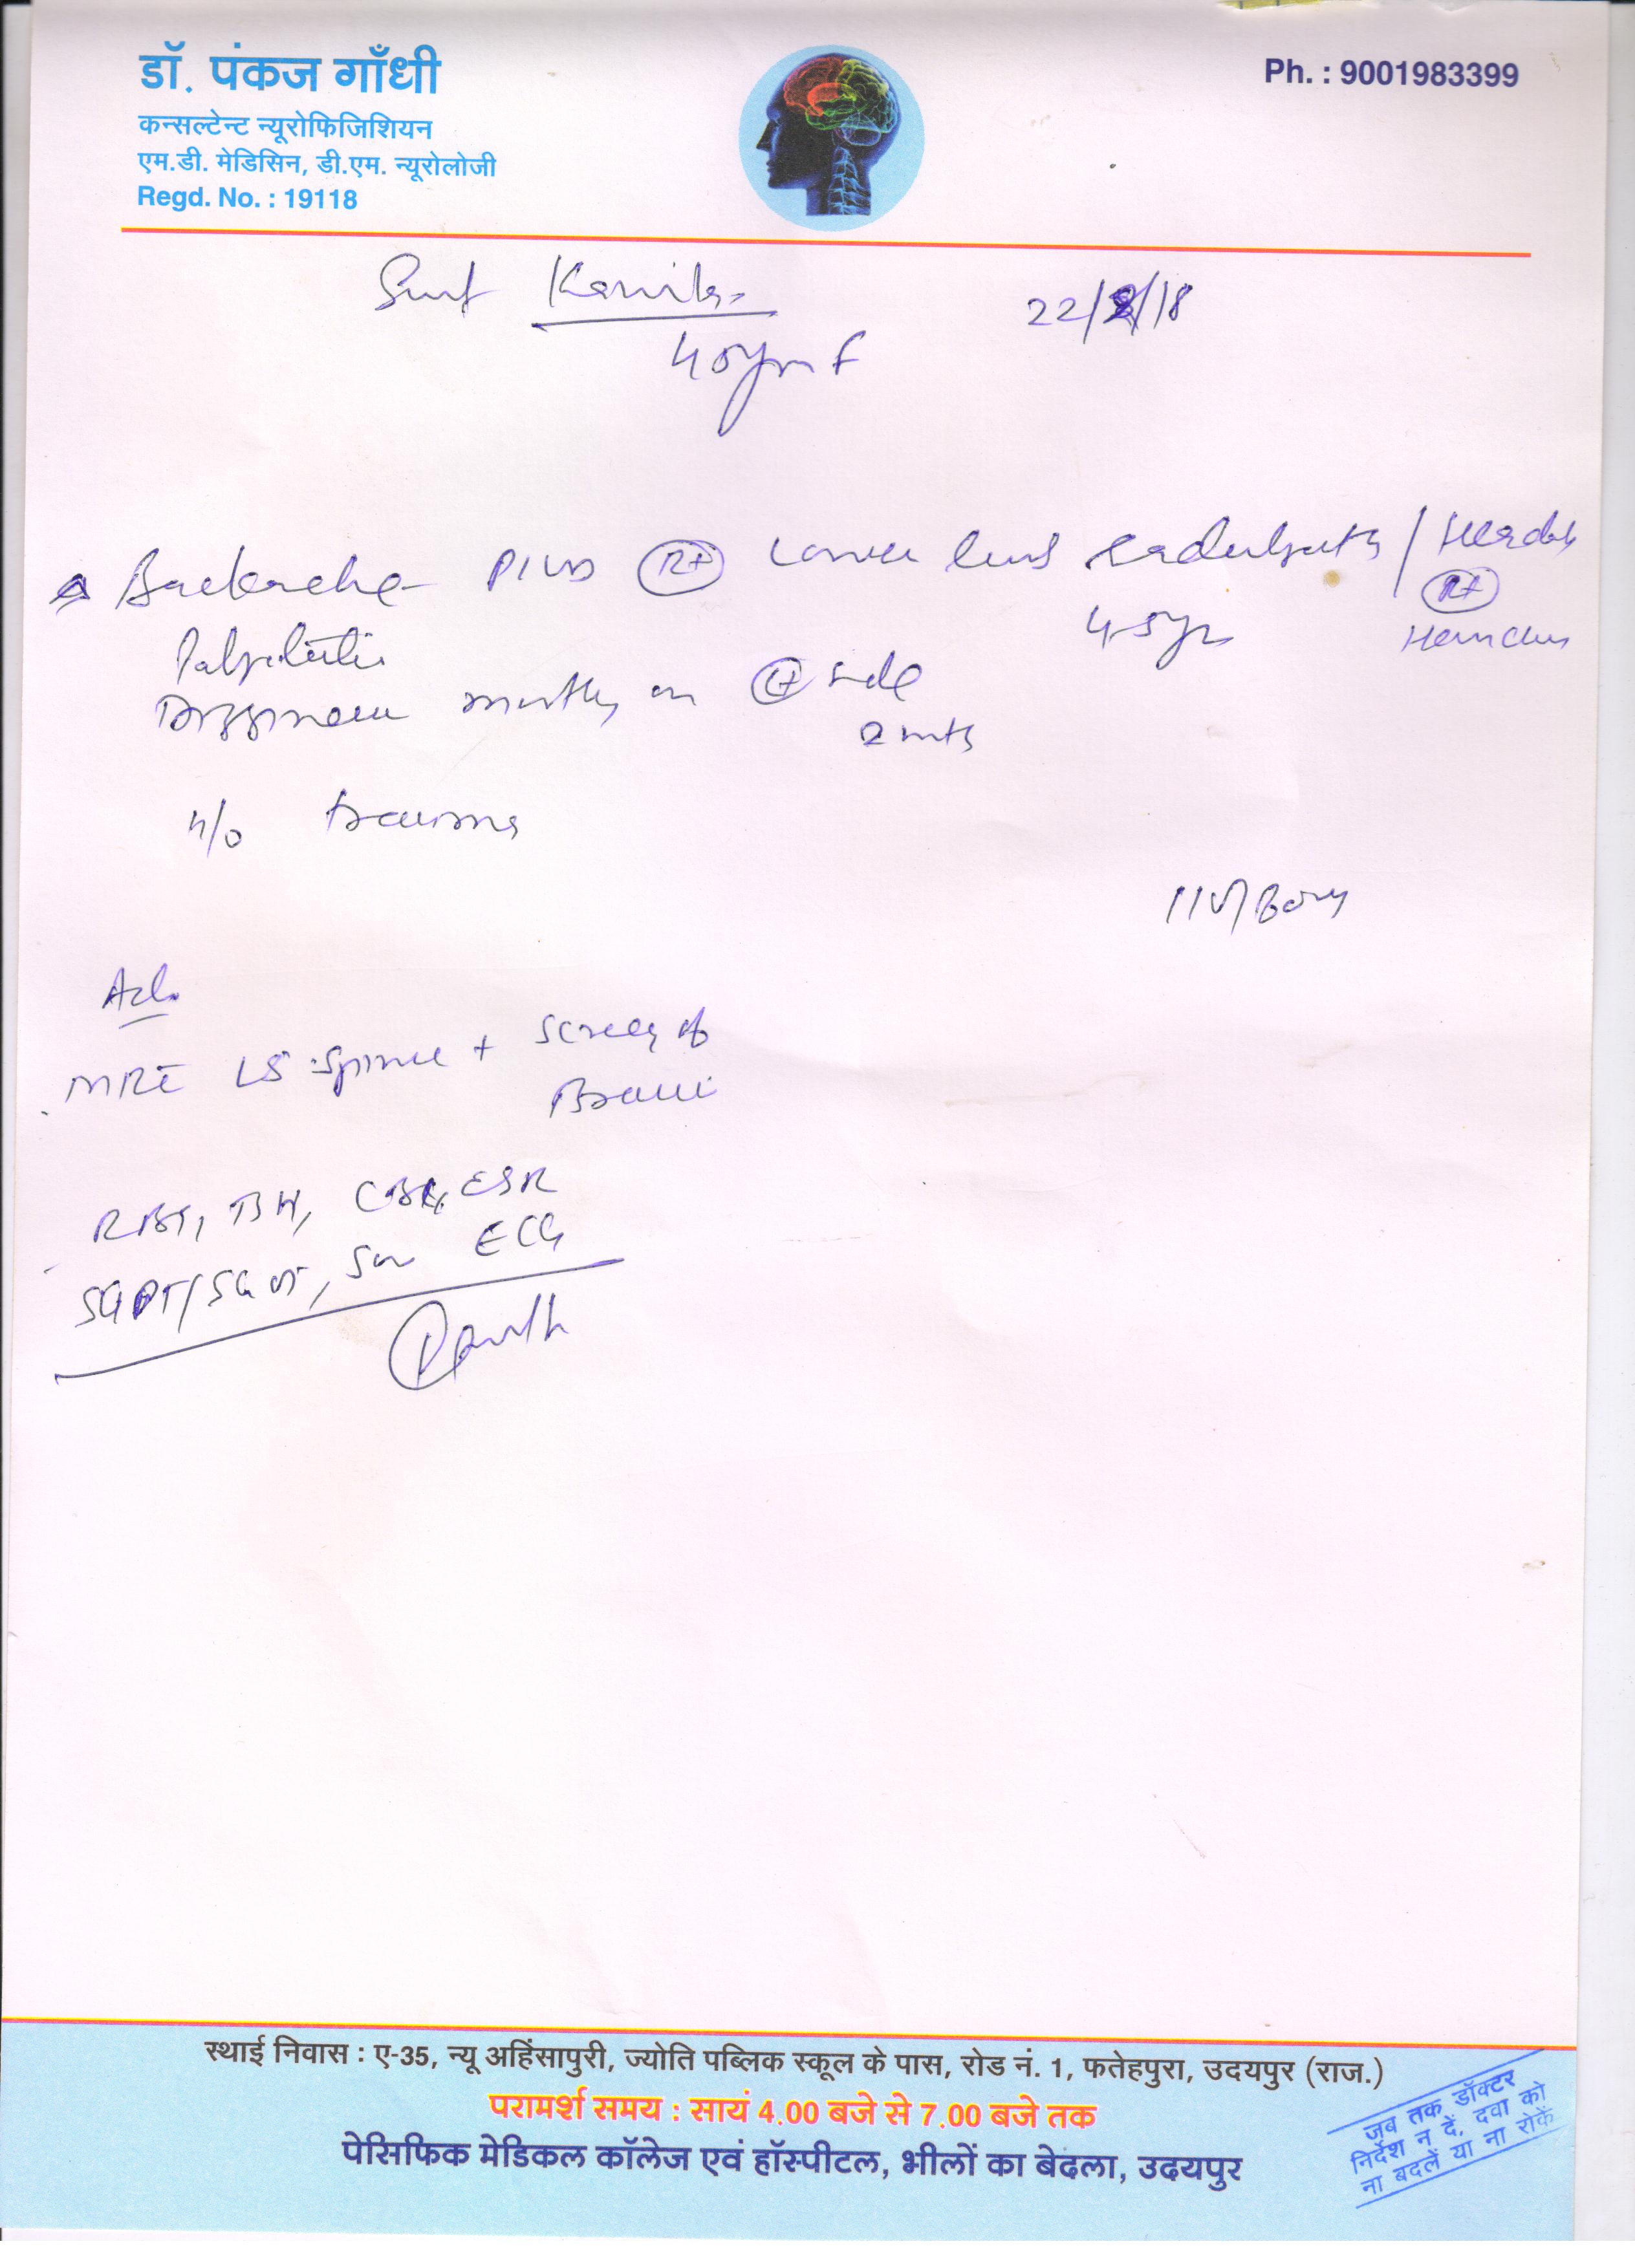 डॉ. पंकज गाँधी
कन्सल्टेन्ट न्यूरोफिजिशियन
एम.डी. मेडिसिन, डी.एम. न्यूरोलोजी
Regd. No. : 19118
Ph. : 9001983399
Smt
22/ /18
40 yrs F
Backache Rt Lower limb
4-5 yr
Rt
Palpitation
Dizziness mostly on side
2 mths
h/o trauma
110/80
Adv.
MRI LS Spine + Screening of
Brain
CBC, ESR
SGPT/SGOT, ECG
स्थाई निवास : ए-35, न्यू अहिंसापुरी, ज्योति पब्लिक स्कूल के पास, रोड नं. 1, फतेहपुरा, उदयपुर (राज.)
परामर्श समय : सायं 4.00 बजे से 7.00 बजे तक
पेसिफिक मेडिकल कॉलेज एवं हॉस्पीटल, भीलों का बेदला, उदयपुर
जब तक डॉक्टर
निर्देश न दें, दवा को
ना बदलें या ना रोकें